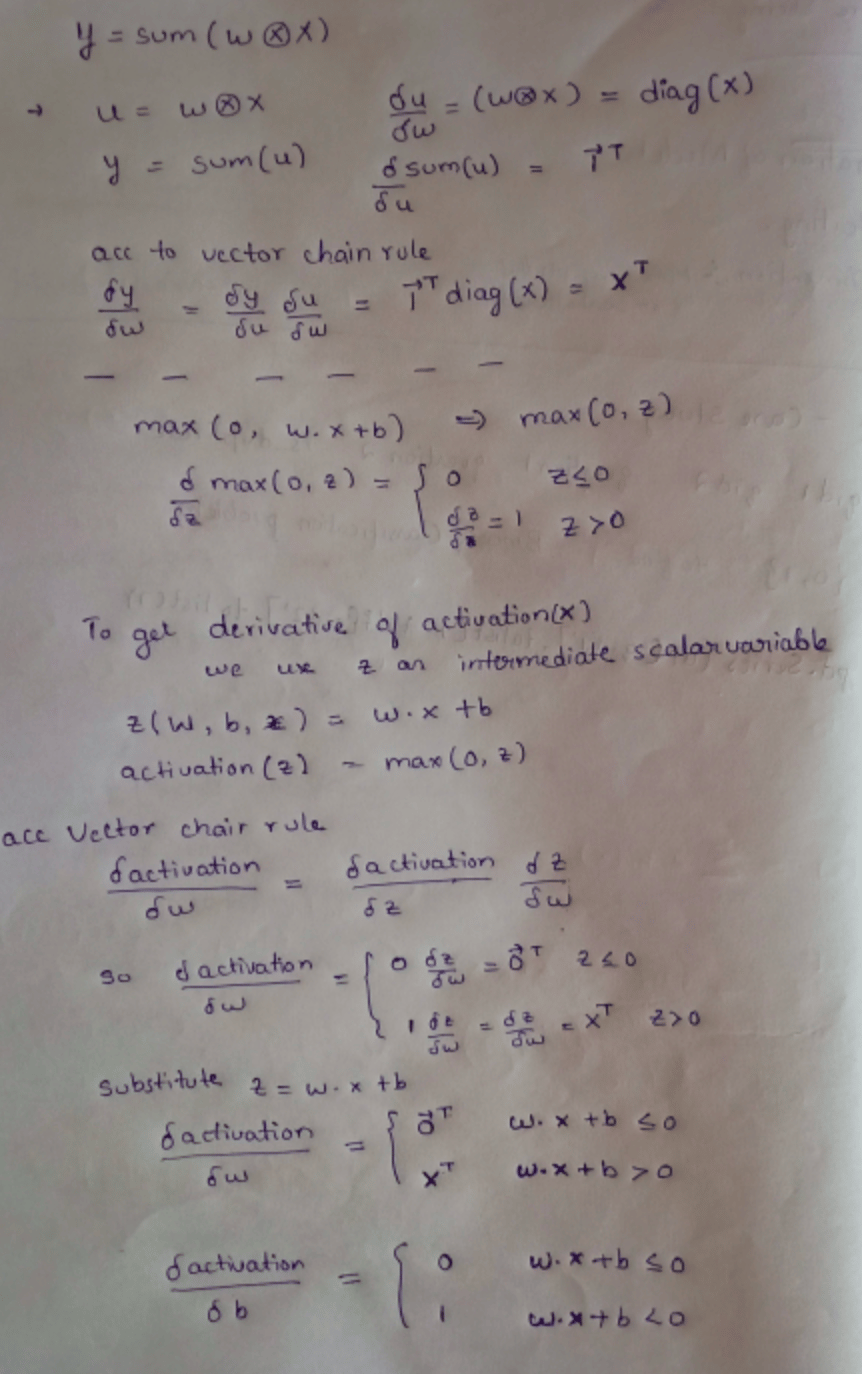 y = sum(w ⊗ x)
→ u = w ⊗ x    δu/δw = (w⊗x) = diag(x)
y = sum(u)    δ sum(u)/δu = 1⃗ᵀ
acc to vector chain rule
δy/δw = δy/δu δu/δw = 1⃗ᵀ diag(x) = xᵀ
— — — — — —
max(0, w.x+b) ⇒ max(0,z)
δ/δz max(0,z) = { 0    z≤0
δz/δz = 1    z>0
To get derivative of activation(x)
we use z an intermediate scalar variable
z(w, b, x) = w.x +b
activation(z) = max(0,z)
acc Vector chair rule
δactivation/δw = δactivation/δz δz/δw
so δactivation/δw = { 0 δz/δw = 0⃗ᵀ    z≤0
1 δz/δw = δz/δw = xᵀ    z>0
Substitute z = w.x +b
δactivation/δw = { 0⃗ᵀ    w.x +b ≤0
xᵀ    w.x+b >0
δactivation/δb = { 0    w.x+b ≤0
1    w.x+b <0